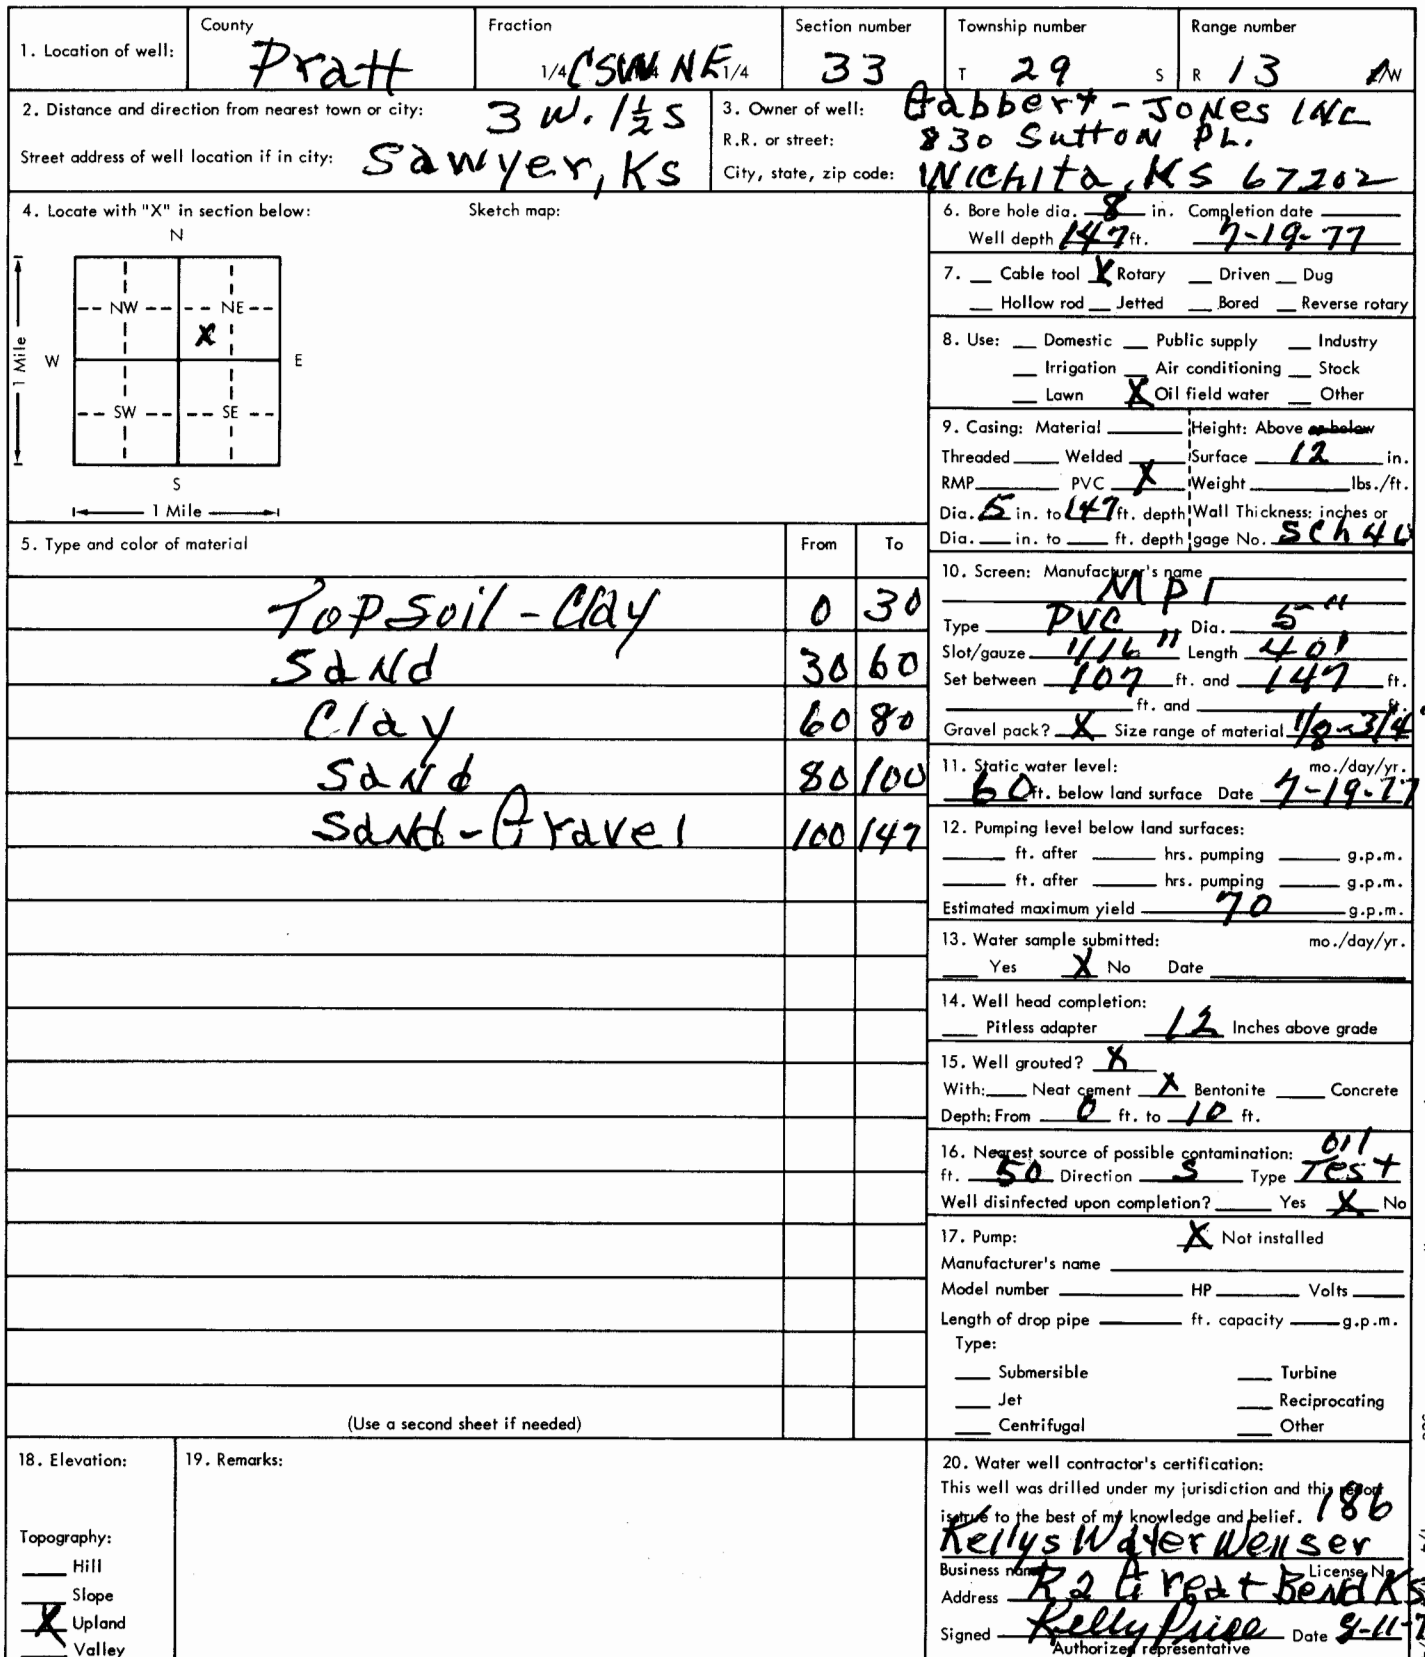 1. Location of well: County Pratt Fraction 1/4 CSW 1/4 NE 1/4 Section number 33 Township number T 29 S Range number R 13 E/W
2. Distance and direction from nearest town or city: 3 W. 1½ S
Street address of well location if in city: Sawyer, Ks
3. Owner of well: Gabbert-Jones INC
R.R. or street: 830 Sutton PL.
City, state, zip code: Wichita, KS 67202
4. Locate with "X" in section below: Sketch map:
N
NW NE
X
W E
1 Mile
SW SE
S
1 Mile
5. Type and color of material From To
Topsoil - Clay 0 30
Sand 30 60
Clay 60 80
Sand 80 100
Sand - Gravel 100 147
(Use a second sheet if needed)
6. Bore hole dia. 8 in. Completion date
Well depth 147 ft. 7-19-77
7. Cable tool X Rotary Driven Dug
Hollow rod Jetted Bored Reverse rotary
8. Use: Domestic Public supply Industry
Irrigation Air conditioning Stock
Lawn X Oil field water Other
9. Casing: Material Height: Above or below
Threaded Welded Surface 12 in.
RMP PVC X Weight lbs./ft.
Dia. 5 in. to 147 ft. depth Wall Thickness: inches or
Dia. in. to ft. depth gage No. Sch 40
10. Screen: Manufacturer's name
MPI
Type PVC Dia. 5"
Slot/gauze 1/16" Length 40'
Set between 107 ft. and 147 ft.
ft. and ft.
Gravel pack? X Size range of material 1/8-3/4
11. Static water level: mo./day/yr.
60 ft. below land surface Date 7-19-77
12. Pumping level below land surfaces:
ft. after hrs. pumping g.p.m.
ft. after hrs. pumping g.p.m.
Estimated maximum yield 70 g.p.m.
13. Water sample submitted: mo./day/yr.
Yes X No Date
14. Well head completion:
Pitless adapter 12 Inches above grade
15. Well grouted? X
With: Neat cement X Bentonite Concrete
Depth: From 0 ft. to 10 ft.
16. Nearest source of possible contamination: Oil
ft. 50 Direction S Type Test
Well disinfected upon completion? Yes X No
17. Pump: X Not installed
Manufacturer's name
Model number HP Volts
Length of drop pipe ft. capacity g.p.m.
Type:
Submersible Turbine
Jet Reciprocating
Centrifugal Other
18. Elevation:
Topography:
Hill
Slope
X Upland
Valley
19. Remarks:
20. Water well contractor's certification:
This well was drilled under my jurisdiction and this report
is true to the best of my knowledge and belief. 186
Kellys Water Well Ser
Business name License No.
Address R2 Great Bend Ks
Signed Kelly Price Date
Authorized representative